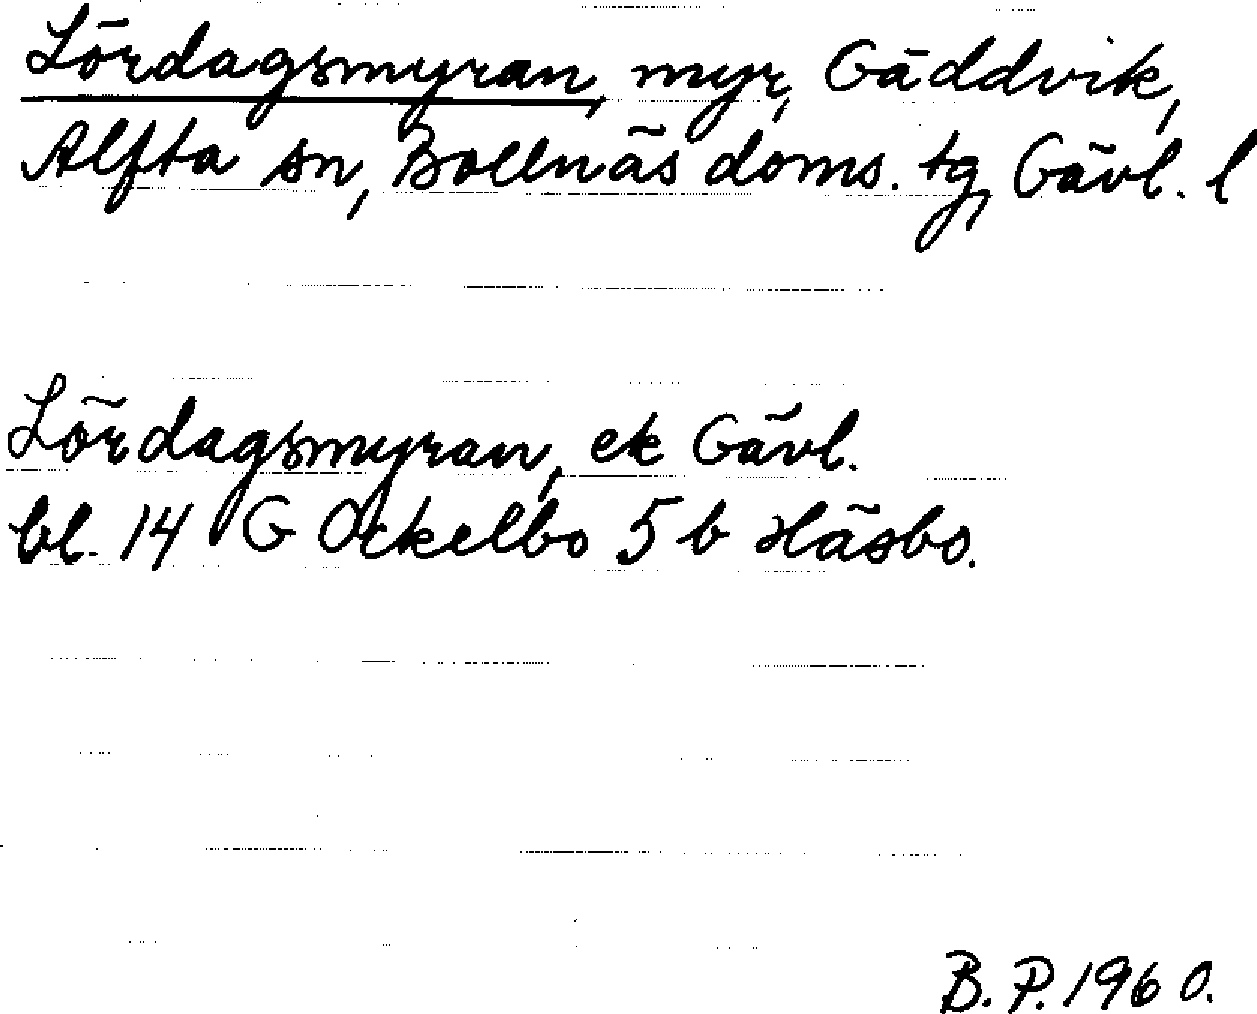 Lördagsmyran, myr, Gäddvik,
Alfta sn, Bollnäs doms. tg, Gävl. l
Lördagsmyran, ek Gävl.
bl. 14 G Ockelbo 5 b Häsbo.
B. P. 1960.